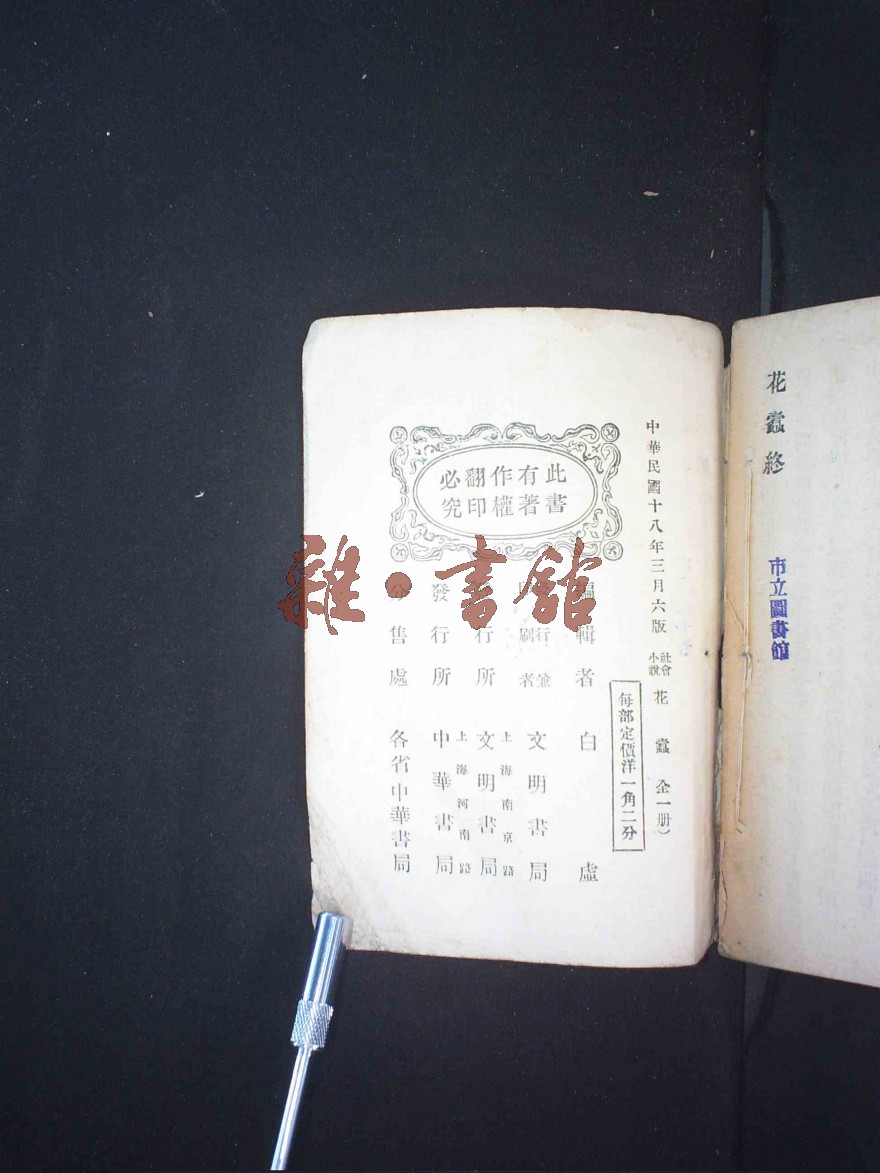 花蠹終
市立圖書館
中華民國十八年三月六版
社會
小說
花蠹 全一册）
每部定價洋一角二分
此書
有著
作權
翻印
必究
編輯者 白 虛
行兼
刷者 文明書局
上海南京路
行所 文明書局
上海河南路
發行所 中華書局
分售處 各省中華書局
雜·書館